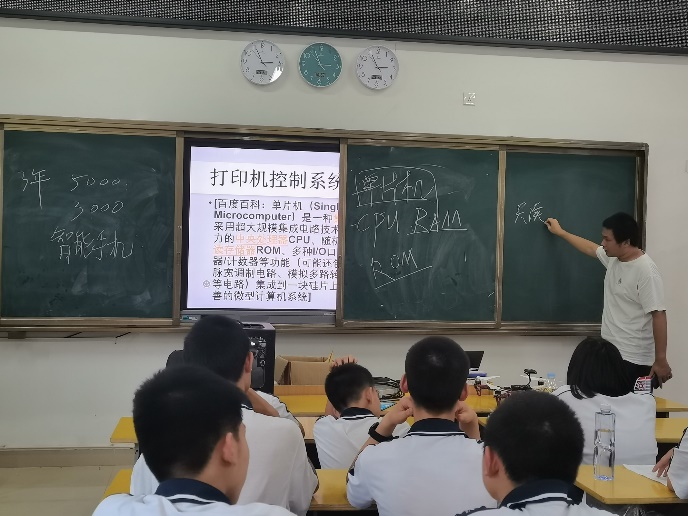 3年 5000
3000
智能手机
打印机控制系统
•[百度百科：单片机（Singl
Microcomputer）是一种
采用超大规模集成电路技术
力的中央处理器CPU、随机
读存储器ROM、多种I/O口
器/计数器等功能（可能还包
脉宽调制电路、模拟多路转
等电路）集成到一块硅片上
善的微型计算机系统]
单片机
CPU RAM
ROM
只读